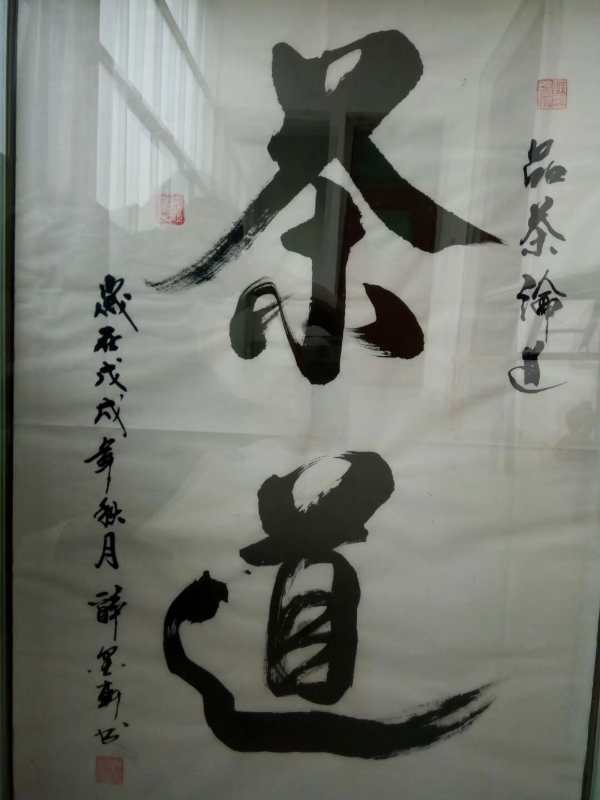 品茶論道
茶道
歲在戊戌年秋月 醉墨軒書